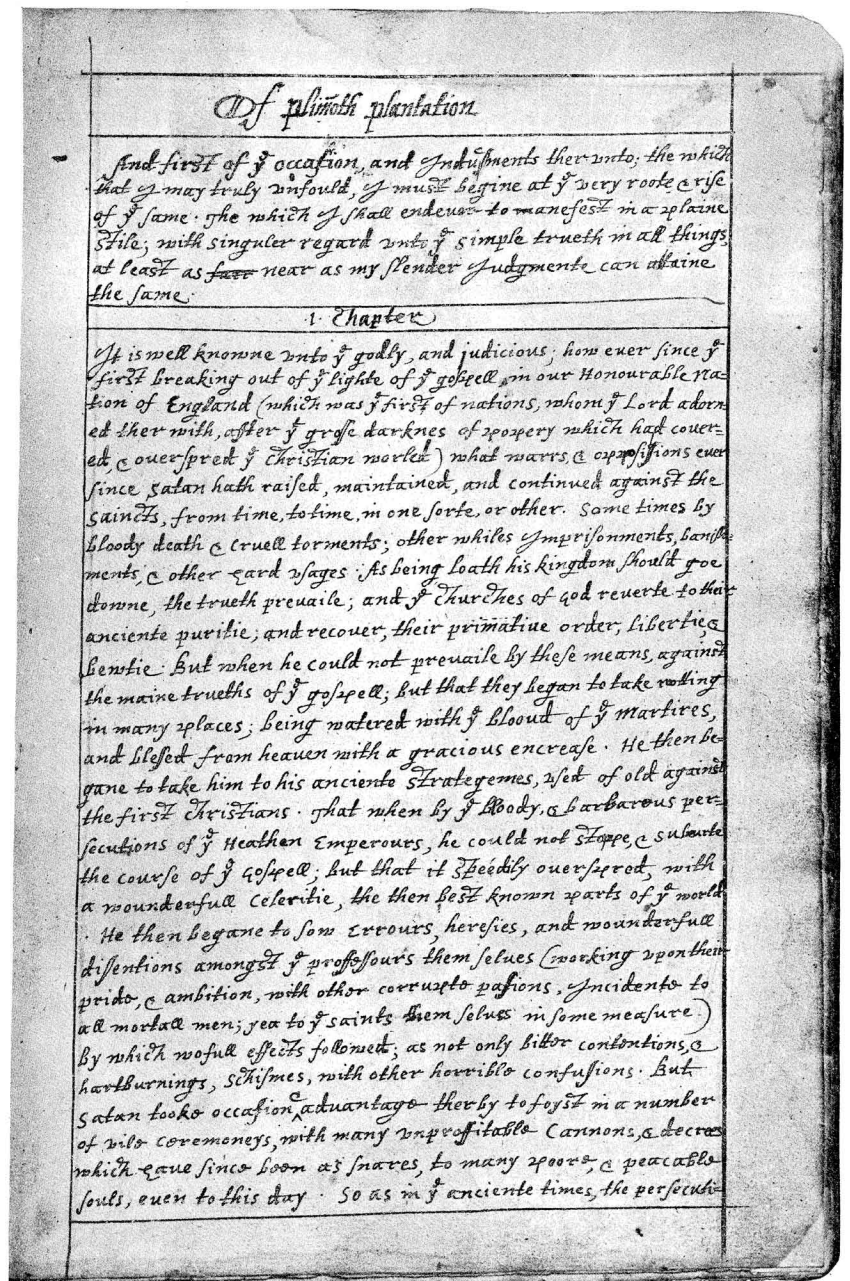 Of plim̃oth plantation
And first of yͤ occasion, and Indusments ther vnto; the which
that I may truly vnfould, I must begine at yͤ very roote & rise
of yͤ same. The which I shall endevor to manefest in a plaine
stile; with singuler regard vnto yͤ simple trueth in all things,
at least as farr near as my slender Judgmente can attaine
the same.
1. Chapter
It is well knowne vnto yͤ godly, and judicious; how ever since yͤ
first breaking out of yͤ lighte of yͤ gospell, in our Honourable Na=
tion of England (which was yͤ first of nations, whom yͤ Lord adorn=
ed ther with, after yͤ grosse darknes of popery which had cover=
ed, & overspred yͤ Christian worled) what warrs, & oppossissions ever
since Satan hath raised, maintained, and continued against the
Saincts, from time, to time, in one sorte, or other. Some times by
bloody death & cruell torments; other whiles Imprisonments, banish=
ments, & other hard vsages. As being loath his kingdom should goe
downe, the trueth prevaile; and yͤ Churches of God reverte to their
anciente puritie; and recover, their prim̃ative order, libertie, &
bewtie. But when he could not prevaile by these means, against
the maine trueths of yͤ gospell; but that they began to take rotting
in many places; being watered with yͤ bloud of yͤ Martires,
and blessed from heaven with a gracious encrease. He then be=
gane to take him to his anciente strategemes, vsed of old against
the first Christians. That when by yͤ bloody, & barbarous per=
secutions of yͤ Heathen Emperours, he could not stoppe, & subuerte
the course of yͤ Gospell; but that it speedily overspred, with
a wounderfull Celeritie, the then best known parts of yͤ world
. He then begane to sow Errours, heresies, and wounderfull
dissentions amongst yͤ proffessours them selves (working vpon their
pride, & ambition, with other corrupte passions, Incidente to
all mortall men; yea to yͤ saints them selves in some measure.)
By which wofull effects followed; as not only bitter contentions, &
hartburnings, Schismes, with other horrible confussions. But
Satan tooke occasion & advantage therby to foyst in a number
of vile ceremoneys, with many vnproffitable Cannons, & decrees
which have since been as snares, to many poore, & peacable
souls, even to this day. So as in yͤ anciente times, the persecuti=